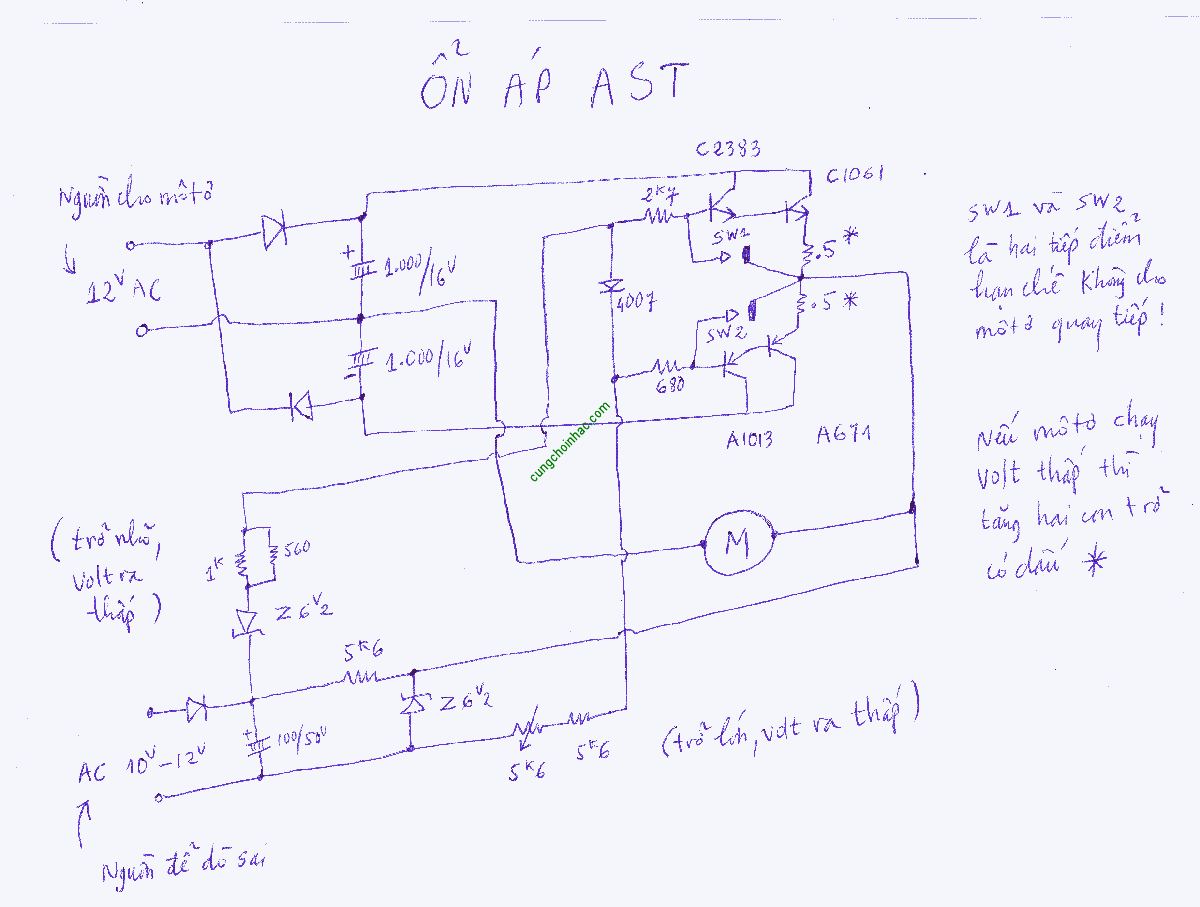 ỔN ÁP AST
Nguồn cho môtơ
12V AC
+
1.000/16V
1.000/16V
-
C2383
C1061
2K7
SW1
.5 *
4007
.5 *
SW2
680
A1013
A671
SW1 và SW2
là hai tiếp điểm
hạn chế không cho
môtơ quay tiếp!
Nếu môtơ chạy
volt thấp thì
tăng hai con trở
có dấu *
cungchoinhac.com
M
(trở nhỏ,
volt ra
thấp)
1K
560
Z6V2
5K6
Z6V2
+
100/50V
5K6
5K6
(trở lớn, volt ra thấp)
AC 10V-12V
Nguồn để dò sai